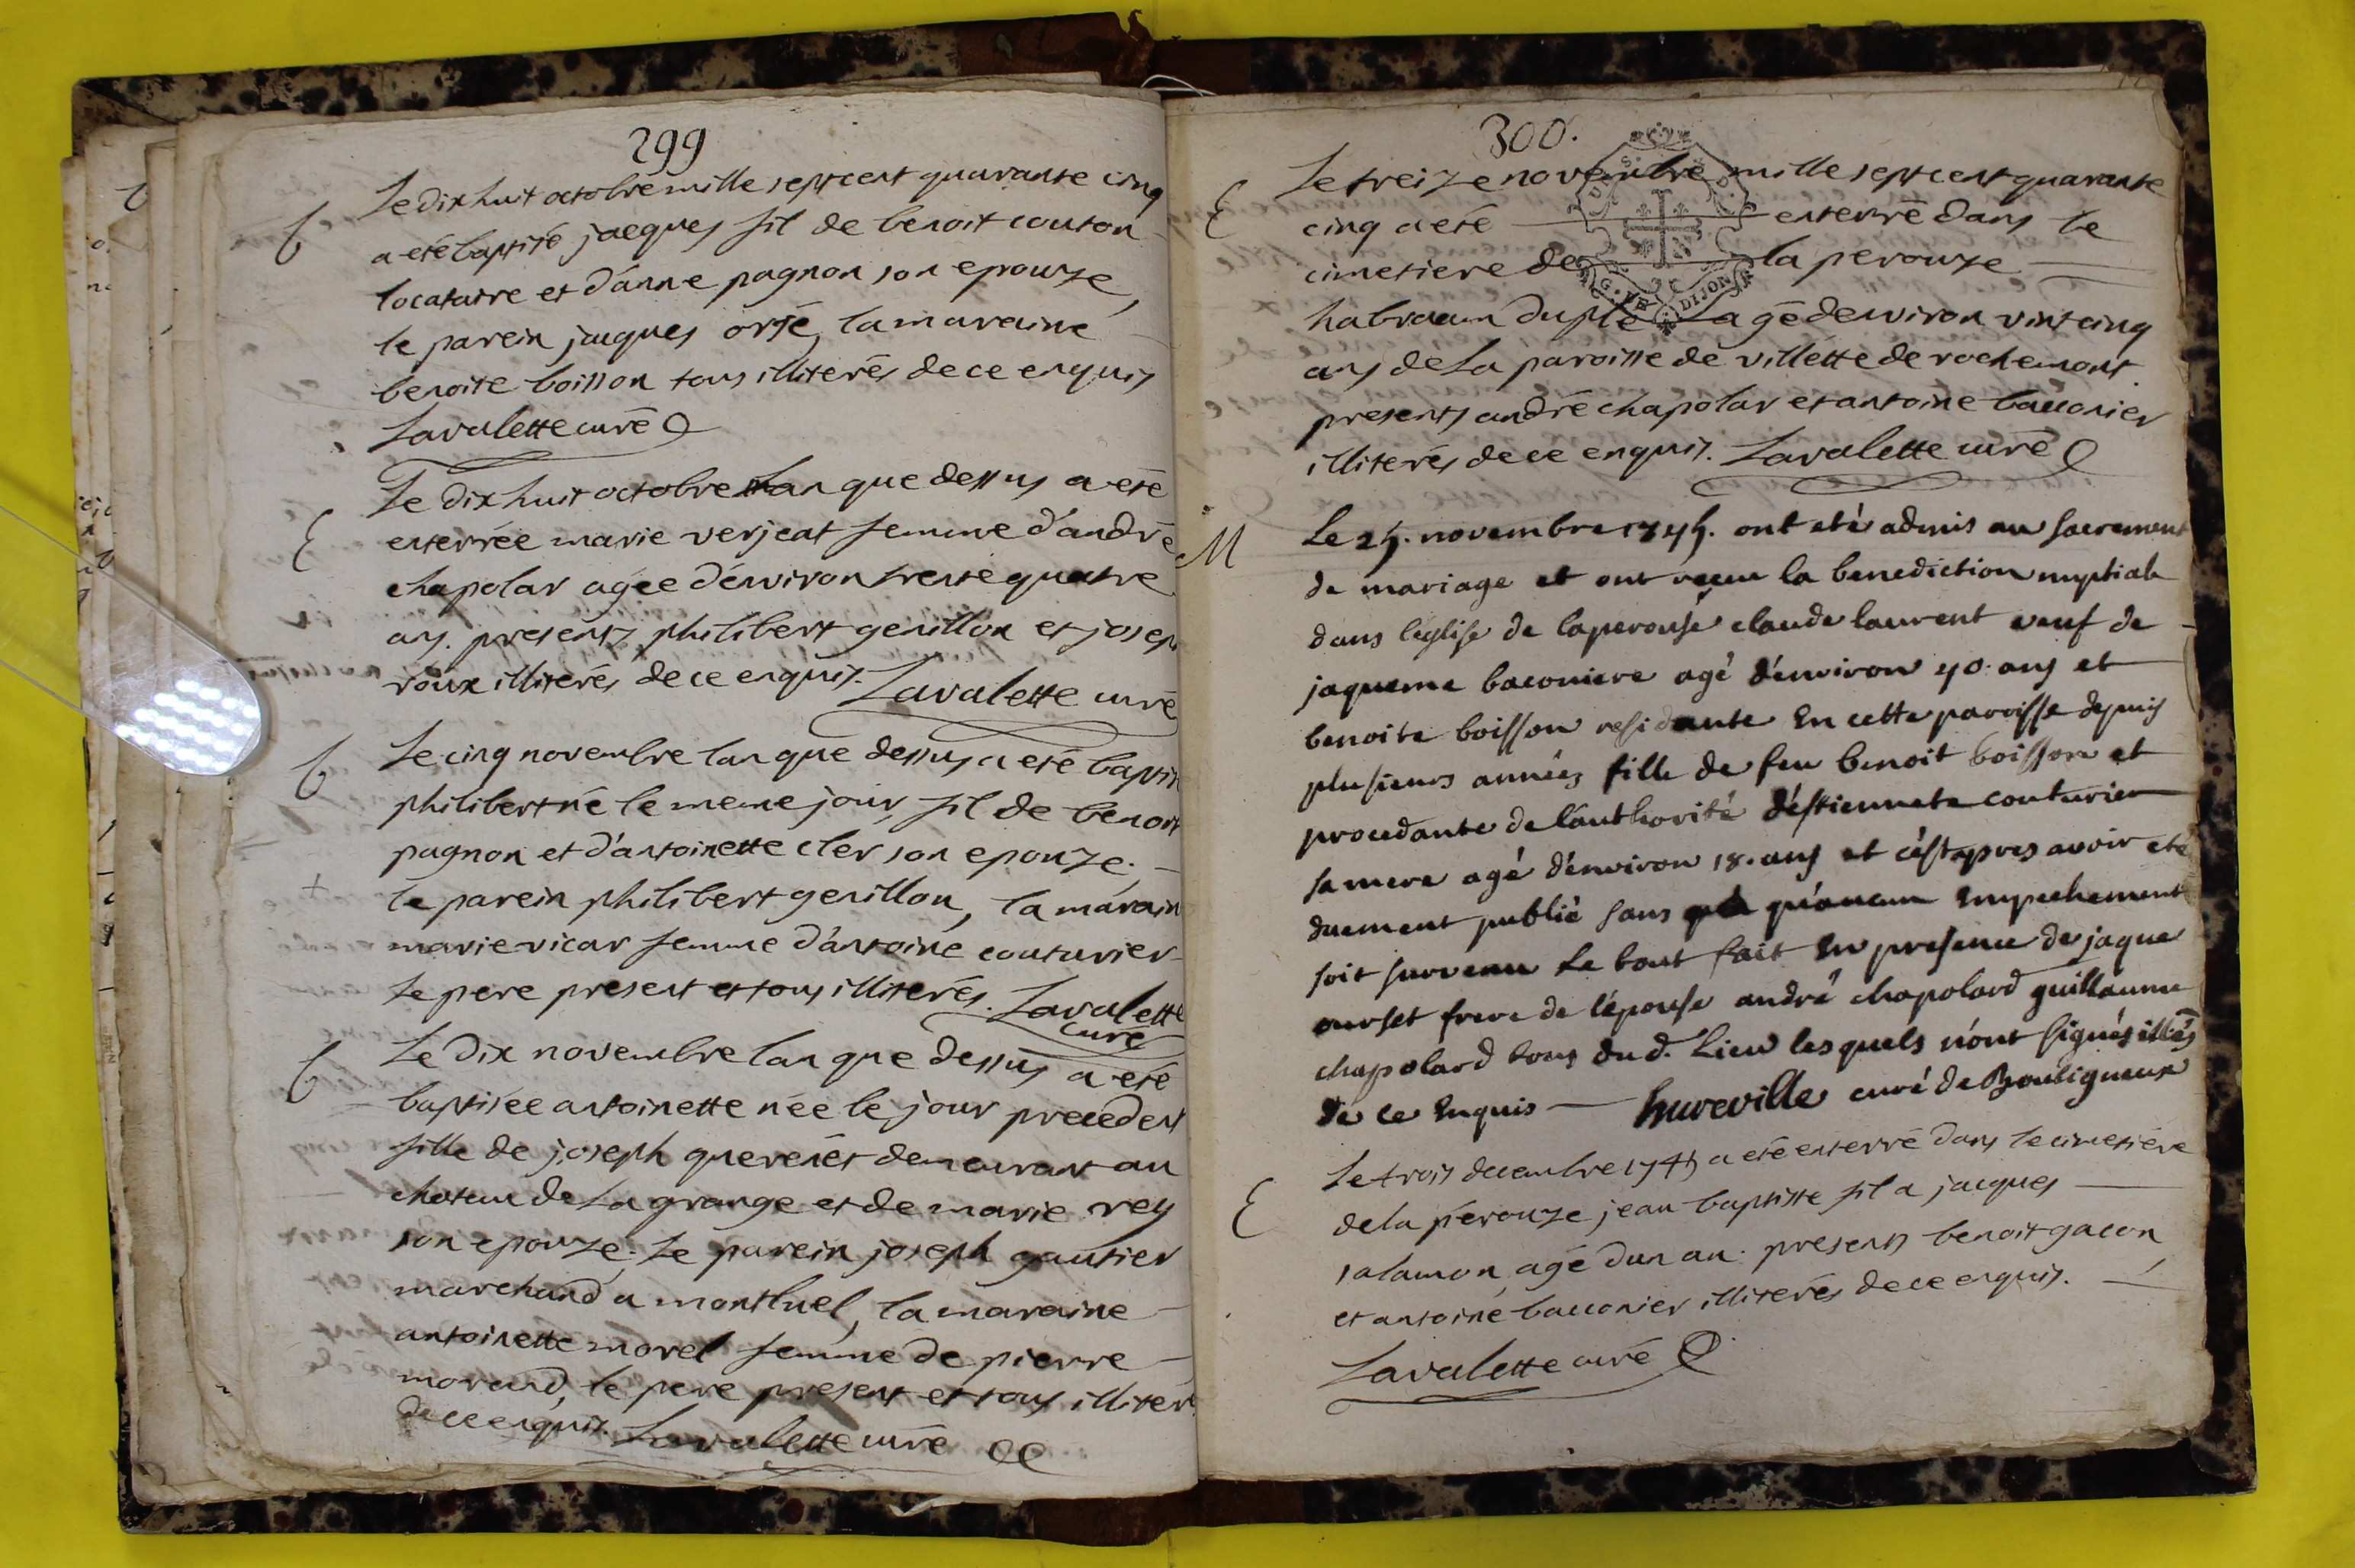 299
b
Le dix huit octobre mille sept cent quarante cinq
a eté baptisé jacques fil de benoit couton
locataire et d'anne pagnon son epouze,
le parein jacques orsé, la maraine
benoite boisson tous illiterés de ce enquis
Lavalette curé
E
Le dix huit octobre lan que dessus a eté
enterrée marie verjeat femme d'andré
chapolar agée d'environ trente quatre
ans. presents philibert genillon et josep
roux illiterés de ce enquis. Lavalette curé
b
Le cinq novembre lan que dessus a eté baptis
philibert né le meme jour, fil de benoit
pagnon et d'antoinette cler son epouze.
+
le parein philibert genillon, la marain
marie vicar femme d'antoine couturier
le pere present et tous illiterés. Lavalette
curé
b
Le dix novembre lan que dessus a eté
baptisée antoinette née le jour precedent
fille de joseph demeurant au
chateau de La grange et de marie rey
son epouze. Le parein joseph gautier
marchand a montluel, la maraine
antoinette morel femme de pierre
morand, le pere present et tous illiter
de ce enquis. Lavalette curé
300.
E
Le treize novembre mille sept cent quarante
cinq a eté enterré dans le
cimetiere de la perouze
habraam duplé agé denviron vint cinq
ans de La paroisse de villette de rochemont
presents andré chapolar et antoine bacconier
illiterés de ce enquis. Lavalette curé
G. DE DIJON
M
Le 25. novembre 1745. ont eté admis au sacrement
de mariage et ont recue la benediction nuptiale
dans léglise de laperouse claude laurent veuf de
jaqueme baconiere agé d'environ 40. ans et
benoite boisson residante En cette paroisse depuis
plusieurs années fille de feu benoit boisson et
procedante de l'authorité d'estiennete couturier
sa mere agé d'environ 18. ans et c'est apres avoir eté
duement publié sans qu'aucun Empechement
soit survenu le tout fait En presence de jaque
ourset frere de l'épouse andré chapolard guillaume
chapolard tous dud. Lieu lesquels n'ont signés illés
de ce Enquis — hureville curé de Bouligneux
E
Le trois decembre 1745 a eté enterré dans le cimetiere
de la perouze jean baptiste fil a jacques
salamon, agé dun an. presents benoit gacon
et antoine bacconier illiterés de ce enquis.
Lavalette curé